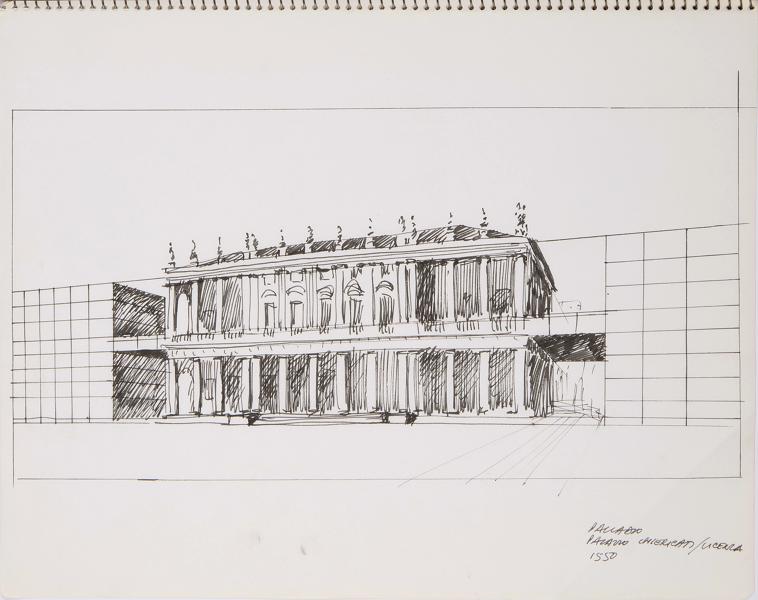 PALLADIO
PALAZZO CHIERICATI/VICENZA
1550